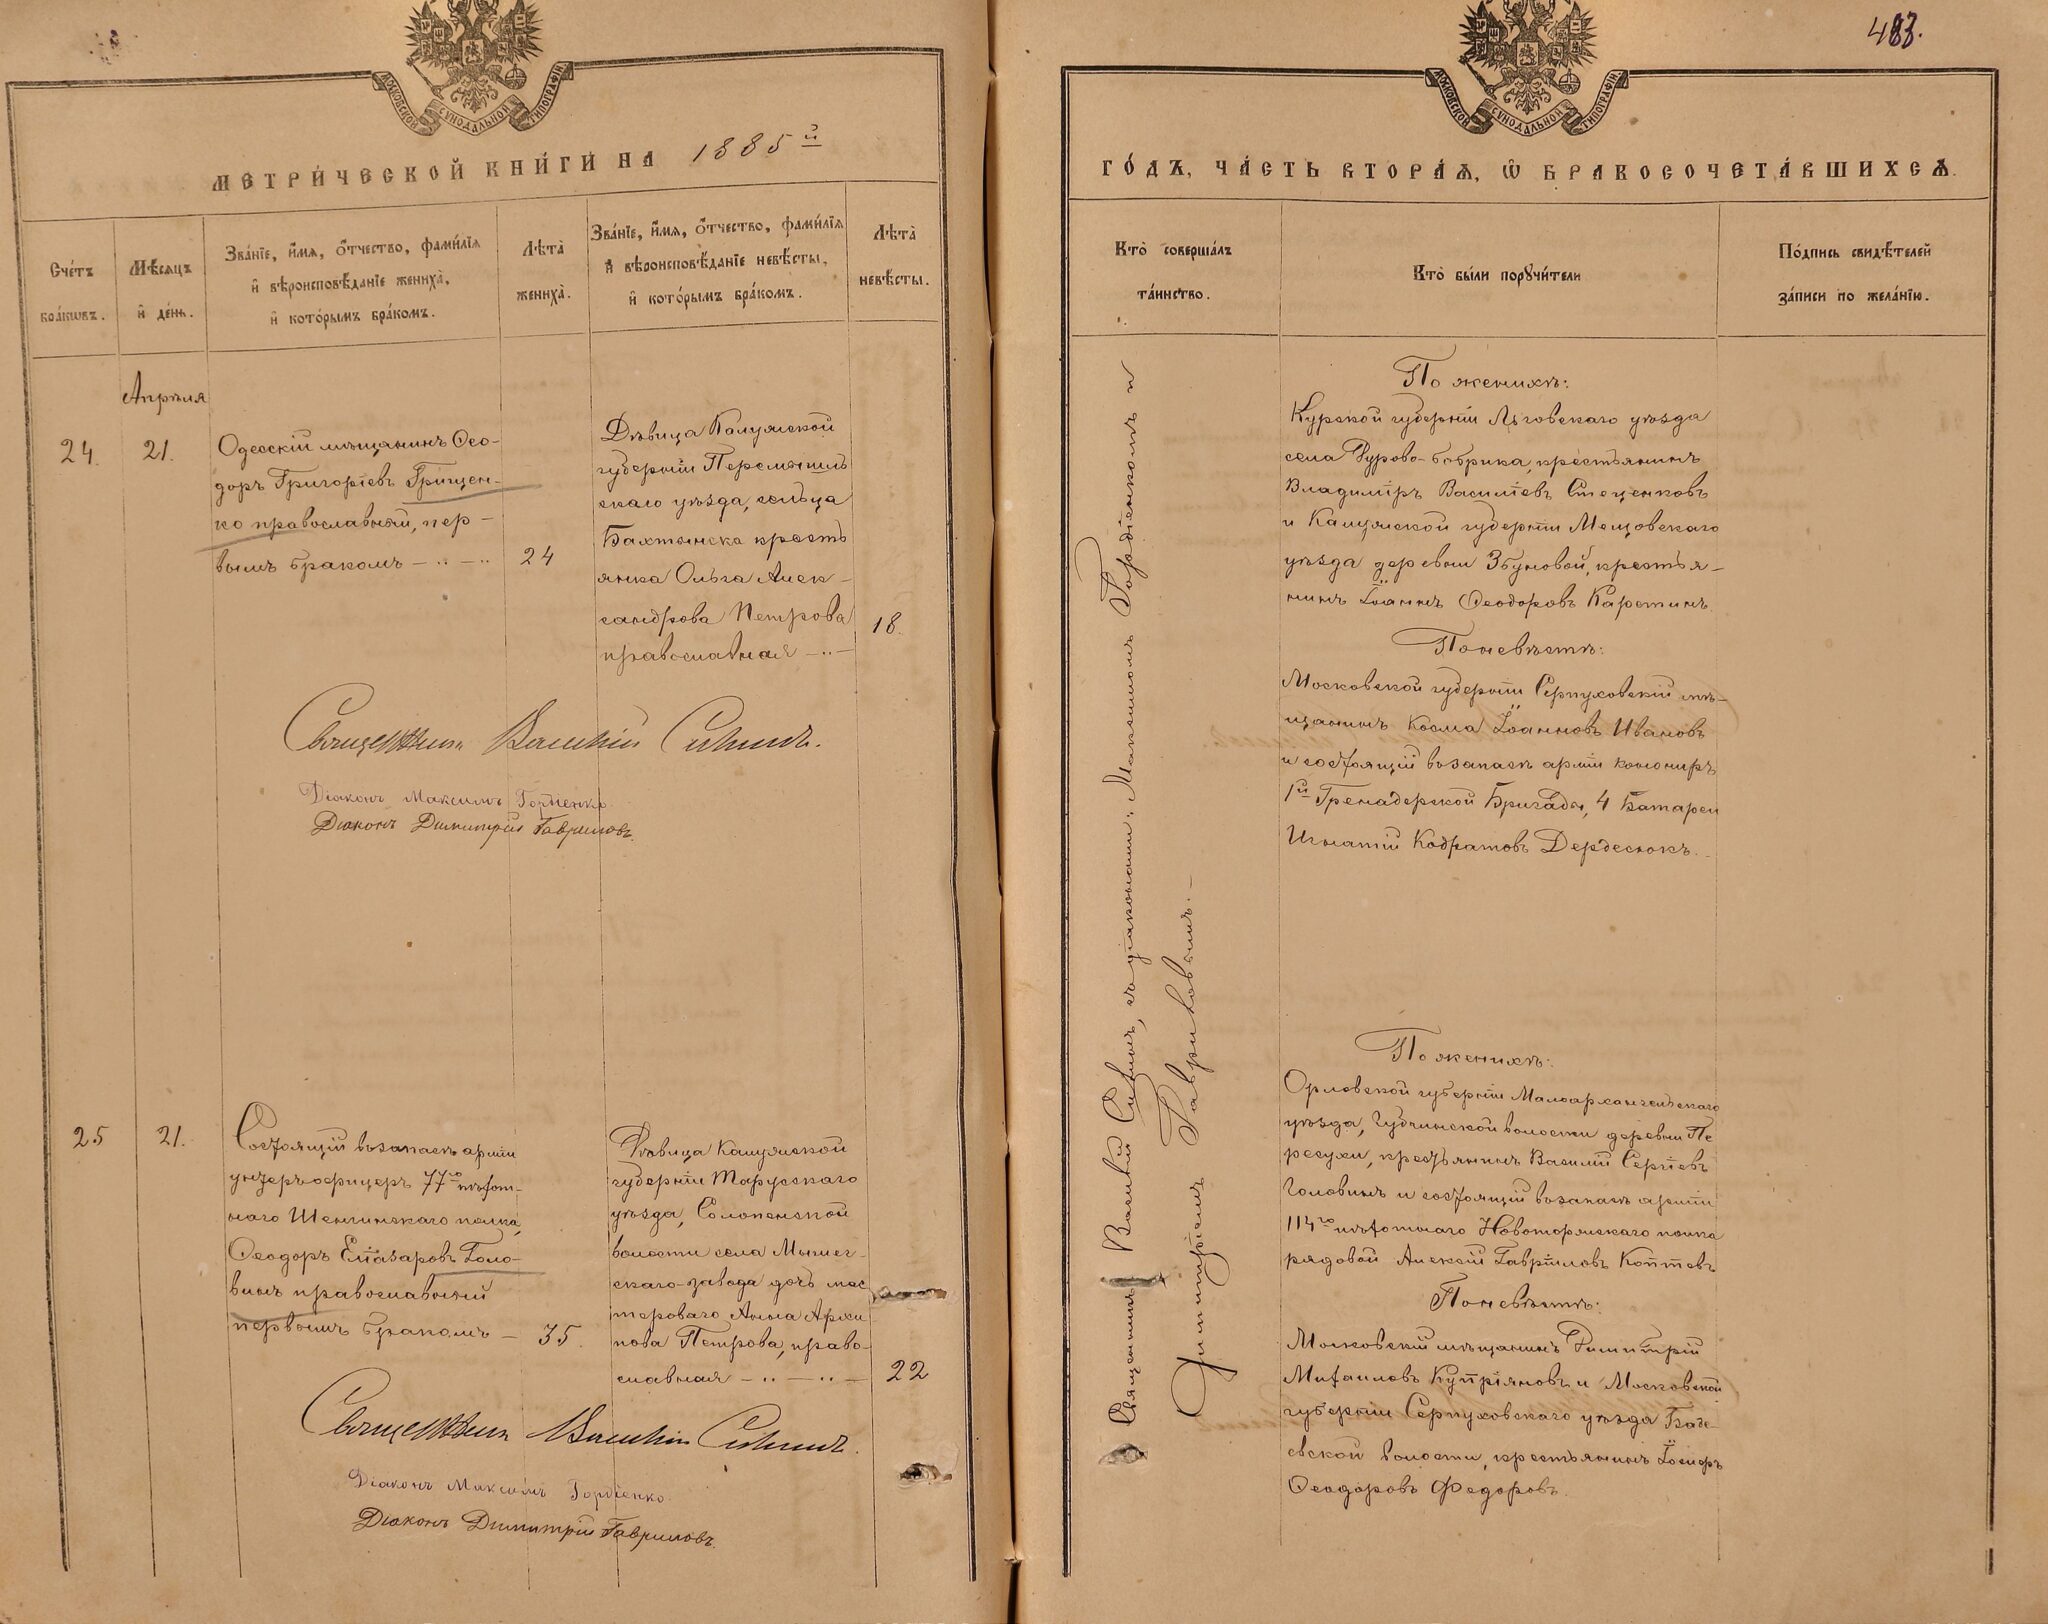 МОСКОВСКОЙ СУНОДАЛЬНОЙ ТИПОГРАФІИ
МЕТРИ́ЧЕСКОЙ КНИ́ГИ НА 1885й
Сче́тъ бра́кѡвъ.
Мѣ́сяцъ и҆ де́нь.
Зва́нїе, и҆́мя, ѻ҆́тчество, фами́лїя и҆ вѣроисповѣ́данїе жениха̀, и҆ кото́рымъ бра́комъ.
Лѣта̀ жениха̀.
Зва́нїе, и҆́мя, ѻ҆́тчество, фами́лїя и҆ вѣроисповѣ́данїе невѣ́сты, и҆ кото́рымъ бра́комъ.
Лѣта̀ невѣ́сты.
Апрѣля
24.
21.
Одесскій мѣщанинъ Ѳео-
доръ Григоріевъ Грищен-
ко православный, пер-
вымъ бракомъ
24
Дѣвица Калужской
губерніи Перемышль
скаго уѣзда, сельца
Бахтынска кресть
янка Ольга Алек-
сандрова Петрова
православная
18.
Священникъ Василій Сивинъ.
Діаконъ Максимъ Гордіенко.
Діаконъ Димитрій Гавриловъ.
25
21.
Состоящій въ запасѣ арміи
унтеръ-офицеръ 77го пѣхот-
наго Шенгинскаго полка,
Ѳеодоръ Еліазаровъ Голо-
винъ православный
первымъ бракомъ
35.
Дѣвица Калужской
губерніи Тарусскаго
уѣзда, Солопенской
волости села Мышег-
скаго-завода дочь мас
тероваго Анна Архи
пова Петрова, право-
славная
22
Священникъ Василій Сивинъ.
Діаконъ Максимъ Гордіенко.
Діаконъ Димитрій Гавриловъ.
483.
МОСКОВСКОЙ СУНОДАЛЬНОЙ ТИПОГРАФІИ
ГО́ДЪ, ЧА́СТЬ ВТОРА́Я, Ѡ҆ БРАКОСОЧЕТА́ВШИХСЯ.
Кто̀ соверша́лъ та́инство.
Кто̀ бы́ли порꙋчи́тели
По́дпись свидѣ́телей за́писи по жела́нїю.
Священникъ Василій Сивинъ, съ діаконами: Максимомъ Гордіенкомъ и
Димитріемъ Гавриловымъ.
По женихѣ:
Курской губерніи Льговскаго уѣзда
села Гурово-бобрика, крестьянинъ
Владиміръ Василіевъ Стеценковъ
и Калужской губерніи Мещовскаго
уѣзда деревни Збуновой, крестья-
нинъ Іоаннъ Ѳеодоровъ Каретинъ.
По невѣстѣ:
Московской губерніи Серпуховскій мѣ-
щанинъ Косма Іоанновъ Ивановъ
и состоящій въ запасѣ арміи канониръ
1й Гренадерской Бригады, 4 Батареи
Игнатій Кодратовъ Дердесюкъ.
По женихѣ:
Орловской губерніи Малоархангельскаго
уѣзда, Губкинской волости деревни Пе
ресухи, крестьянинъ Василій Сергіевъ
Головинъ и состоящій въ запасѣ арміи
114го пѣхотнаго Новоторжскаго полка
рядовой Алексій Гавріиловъ Коптевъ
По невѣстѣ:
Московскій мѣщанинъ Димитрій
Михаиловъ Купріяновъ и Московской
губерніи Серпуховскаго уѣзда Бавы-
евской волости, крестьянинъ Іосифъ
Ѳеодоровъ Федоровъ.